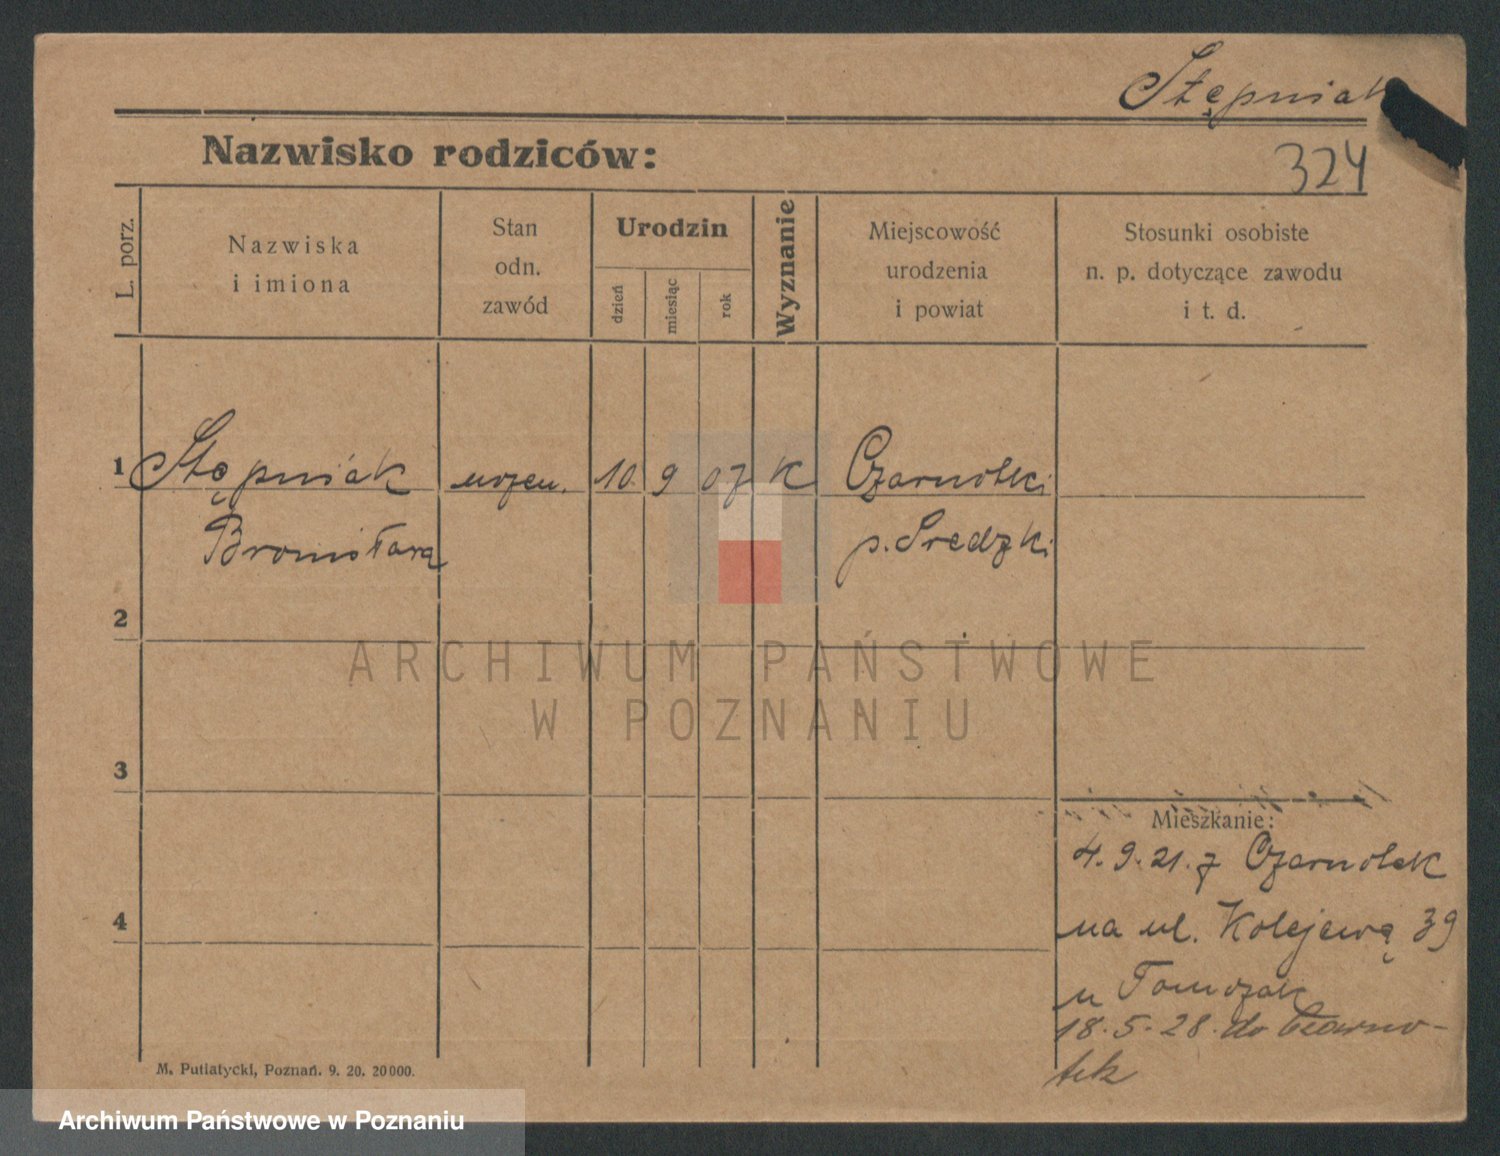 Stępniak
Nazwisko rodziców:
324
L. porz.
Nazwiska
i imiona
Stan
odn.
zawód
Urodzin
dzień
miesiąc
rok
Wyznanie
Miejscowość
urodzenia
i powiat
Stosunki osobiste
n. p. dotyczące zawodu
i t. d.
1 Stępniak 10. 9 07 K Czarnotki
Bronisława p. Średzki
2
3
4
Mieszkanie:
4.9.21. z Czarnotek
na ul. Kolejową 39
u Tomczak
18.5.28. do Czarno-
tek
M. Putiatycki, Poznań. 9. 20. 20000.
ARCHIWUM PAŃSTWOWE
W POZNANIU
Archiwum Państwowe w Poznaniu